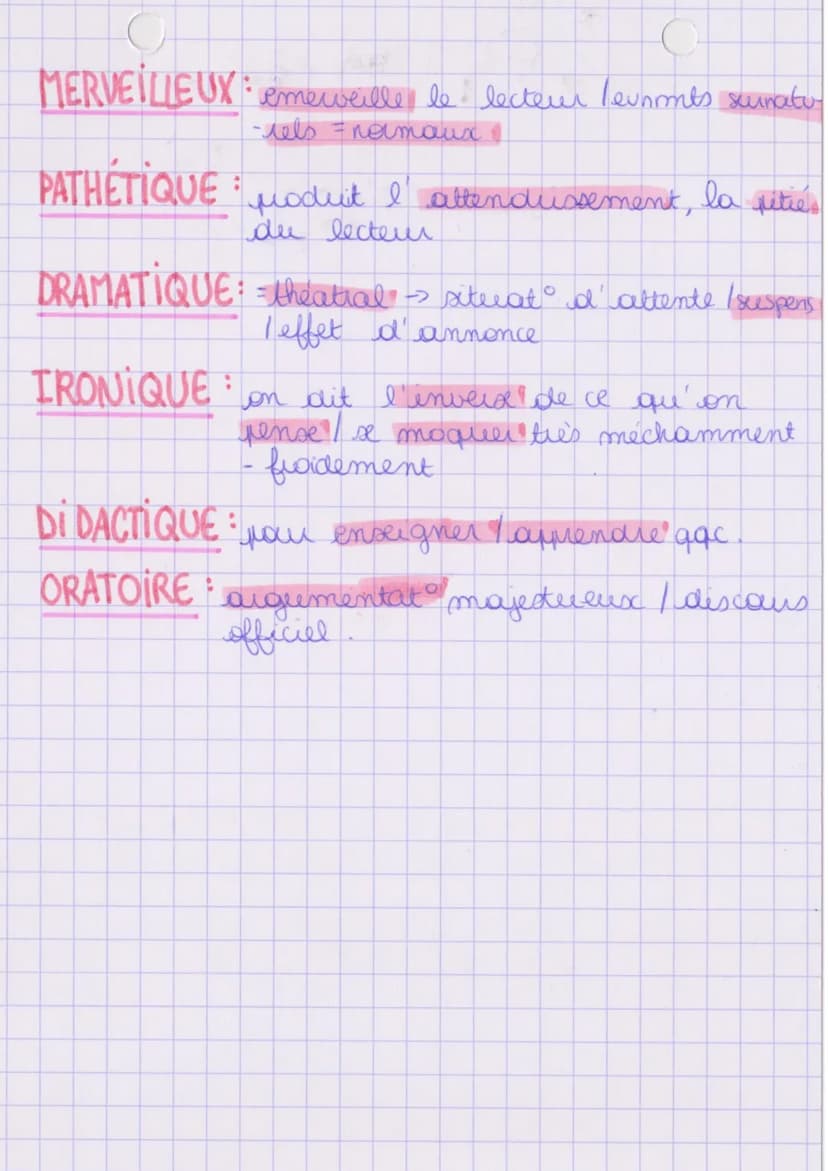 MERVEILLEUX : émerveille le lecteur / evnmts surnatu-
-rels = normaux
PATHÉTIQUE : produit l'attendrissement, la pitié
du lecteur
DRAMATIQUE : = théatral -> situat° d'attente / suspens
/ effet d'annonce
IRONIQUE : on dit l'inverse de ce qu'on
pense / se moquer très méchamment
- froidement
DIDACTIQUE : pour enseigner / apprendre qqc.
ORATOIRE : argumentat° majestueux / discours
officiel.